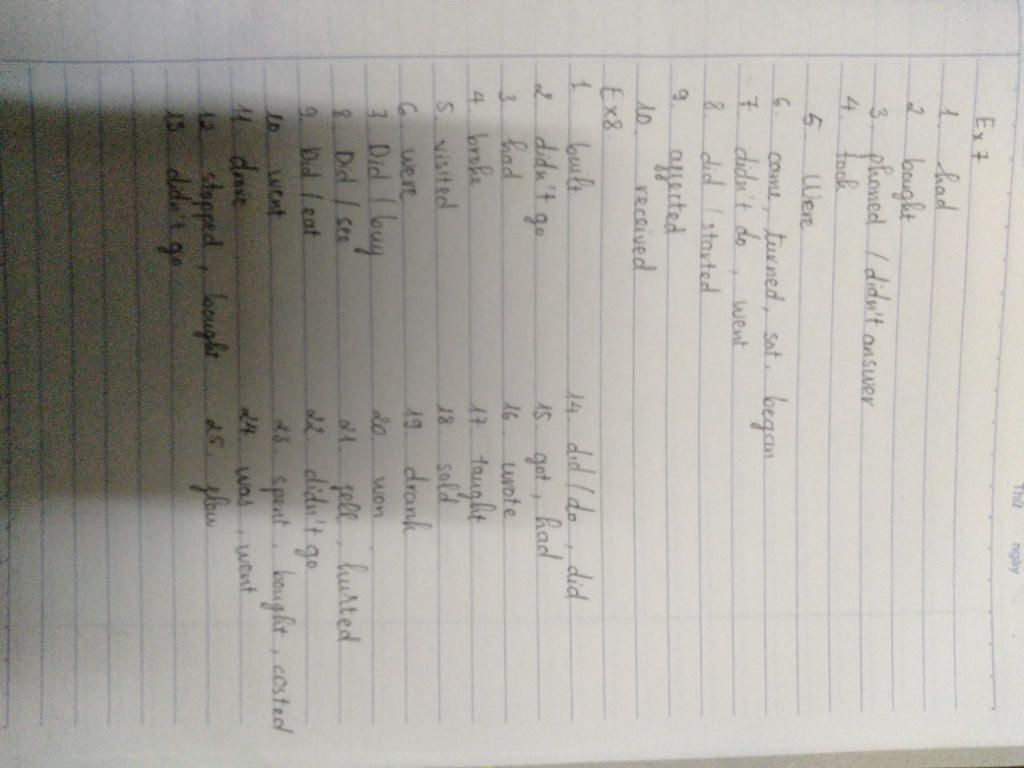 Thứ ngày
Ex 7
1. had
2 bought
3. phoned / didn't answer
4. took
5. Were
6. came, turned, sat, began
7 didn't do, went
8 did / started
9. offerted
10. received
Ex8
1 built
2 didn't go
3 had
4. broke
5. visited
6. were
7 Did / buy
8. Did / see
9. Did / eat
10 went
11. drove
12 stopped, bought
13 didn't go
14. did / do, did
15. got, had
16. wrote
17. taught
18. sold
19. drank
20. won
21. fell, hurted
22. didn't go
23. spent, bought, costed
24. was, went
25. flew